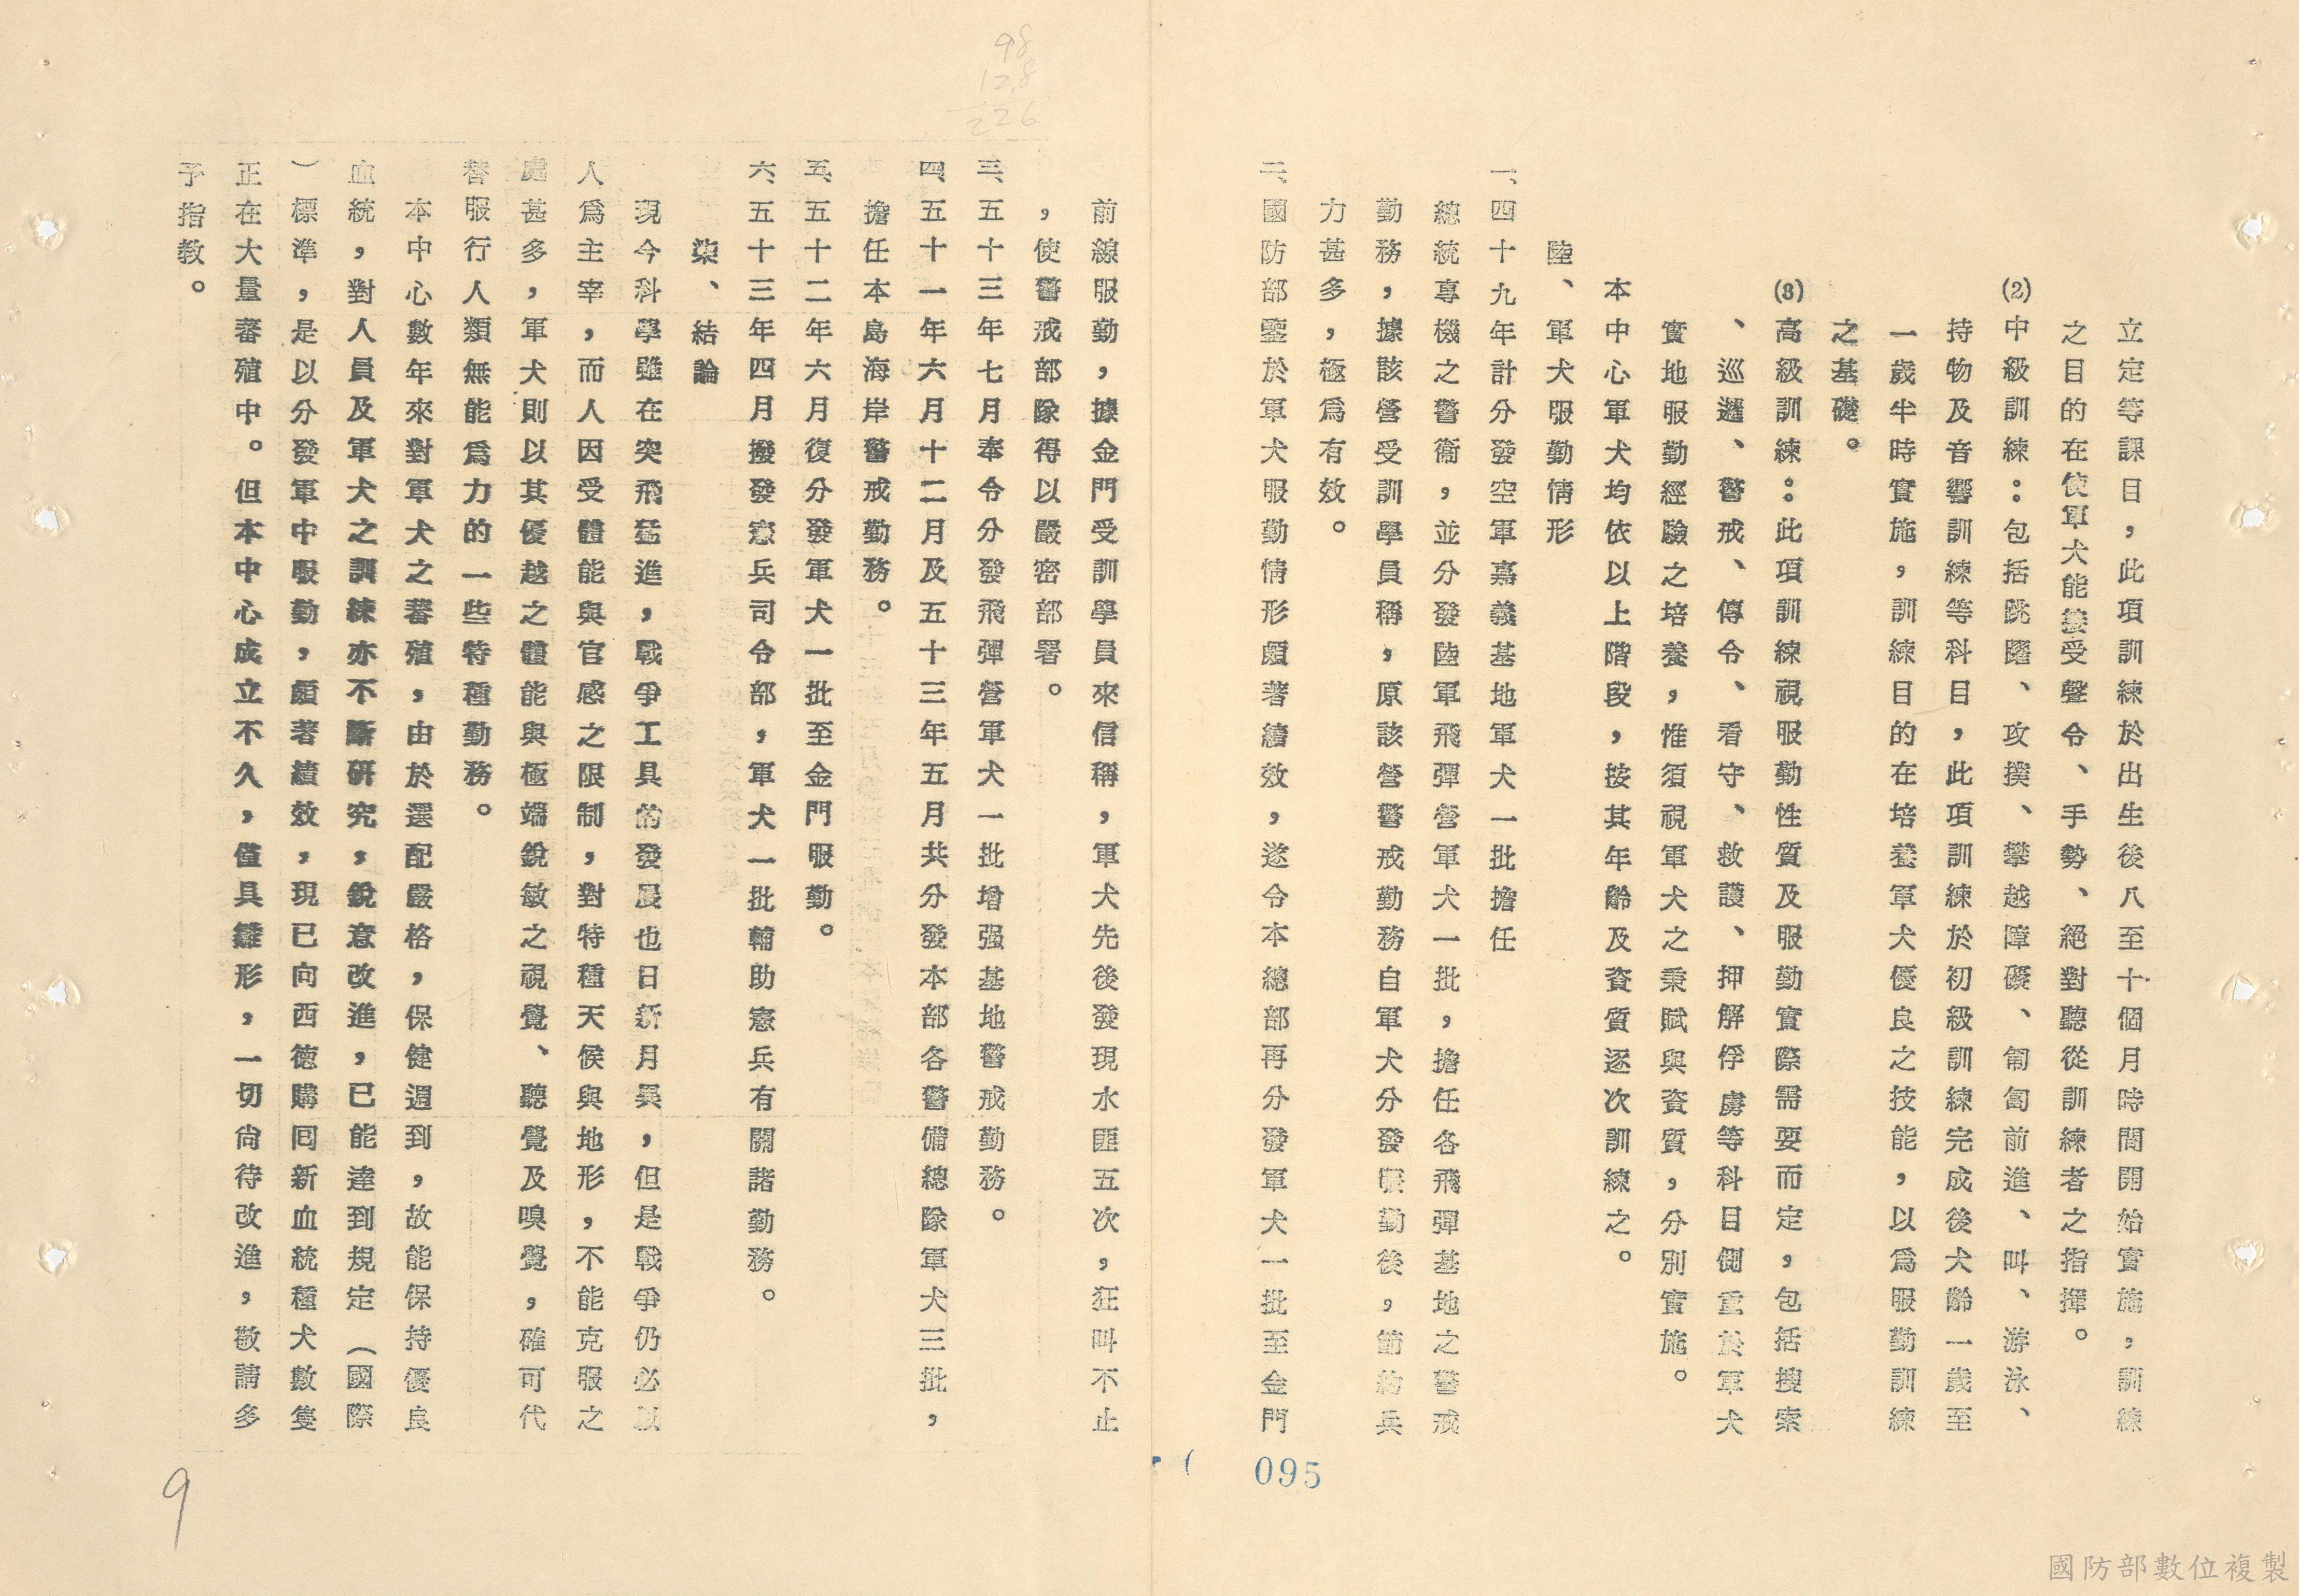 立定等課目，此項訓練於出生後八至十個月時間開始實施，訓練
之目的在使軍犬能接受聲令、手勢、絕對聽從訓練者之指揮。
(2)中級訓練：包括跳躍、攻撲、攀越障礙、匍匐前進、叫、游泳、
持物及音響訓練等科目，此項訓練於初級訓練完成後犬齡一歲至
一歲半時實施，訓練目的在培養軍犬優良之技能，以爲服勤訓練
之基礎。
(3)高級訓練：此項訓練視服勤性質及服勤實際需要而定，包括搜索
、巡邏、警戒、傳令、看守、救護、押解俘虜等科目側重於軍犬
實地服勤經驗之培養，惟須視軍犬之秉賦與資質，分別實施。
本中心軍犬均依以上階段，按其年齡及資質逐次訓練之。
陸、軍犬服勤情形
一、四十九年計分發空軍嘉義基地軍犬一批擔任
總統專機之警衞，並分發陸軍飛彈營軍犬一批，擔任各飛彈基地之警戒
勤務，據該營受訓學員稱，原該營警戒勤務自軍犬分發服勤後，節約兵
力甚多，極爲有效。
二、國防部鑒於軍犬服勤情形頗著績效，遂令本總部再分發軍犬一批至金門
前線服勤，據金門受訓學員來信稱，軍犬先後發現水匪五次，狂叫不止
，使警戒部隊得以嚴密部署。
三、五十三年七月奉令分發飛彈營軍犬一批增强基地警戒勤務。
四、五十一年六月十二月及五十三年五月共分發本部各警備總隊軍犬三批，
擔任本島海岸警戒勤務。
五、五十二年六月復分發軍犬一批至金門服勤。
六、五十三年四月撥發憲兵司令部，軍犬一批輔助憲兵有關諸勤務。
柒、結論
現今科學雖在突飛猛進，戰爭工具的發展也日新月異，但是戰爭仍必以
人爲主宰，而人因受體能與官感之限制，對特種天候與地形，不能克服之
處甚多，軍犬則以其優越之體能與極端銳敏之視覺、聽覺及嗅覺，確可代
替服行人類無能爲力的一些特種勤務。
本中心數年來對軍犬之蕃殖，由於選配嚴格，保健週到，故能保持優良
血統，對人員及軍犬之訓練亦不斷研究，銳意改進，已能達到規定（國際
）標準，是以分發軍中服勤，頗著績效，現已向西德購回新血統種犬數隻
正在大量蕃殖中。但本中心成立不久，僅具雛形，一切尙待改進，敬請多
予指教。
98
12.8
226
095
9
國防部數位複製